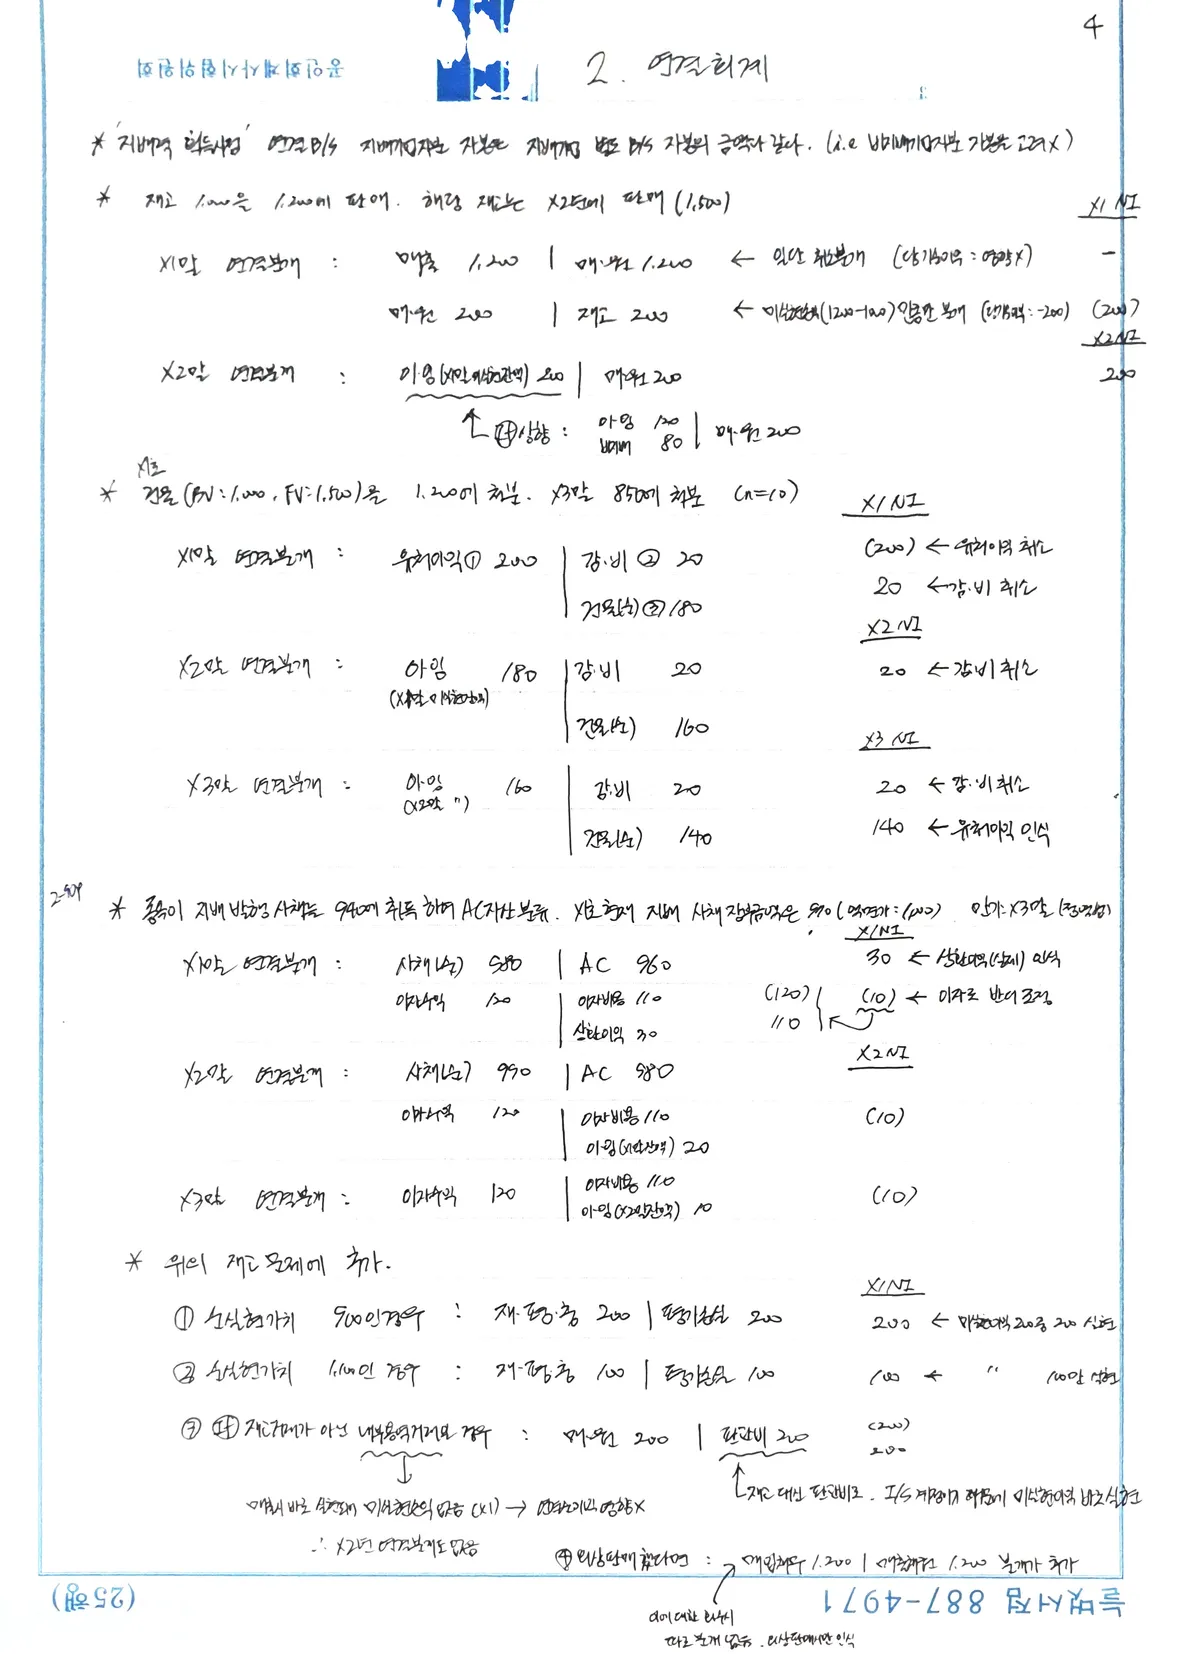 4
공인회계사시험위원회
2. 연결회계
* '지배력 획득시점' 연결 B/S 지배기업지분 자본은 지배기업 별도 B/S 자본의 금액과 같다. (i.e 비지배기업지분 자본은 고려X)
* 재고 1,000을 1,200에 판매. 해당 재고는 X2년에 판매 (1,500)
X1 NI
X1말 연결분개 : 매출 1,200 | 매·원 1,200 ← 일단 취소분개 (당기손익 : 영향X) -
매·원 200 | 재고 200 ← 미실현손익(1200-1000)인 만큼 분개 (당기손익 : -200) (200)
X2NI
X2말 연결분개 : 이·잉(X1말 미실현잔액) 200 | 매·원 200 200
if 상향 : 이·잉 120 비지배 80 | 매·원 200
X1초
* 건물 (BV : 1,000, FV : 1,500)을 1,200에 처분. X3말 850에 처분 (n=10)
X1 NI
X1말 연결분개 : 유처이익① 200 | 감·비 ② 20 (200) ← 유처이익 취소
건물(순) ③ 180 20 ← 감·비 취소
X2 NI
X2말 연결분개 : 이·잉 180 | 감·비 20 20 ← 감·비 취소
(X1말 미실현잔액)
건물(순) 160
X3 NI
X3말 연결분개 : 이·잉 160 | 감·비 20 20 ← 감·비 취소
(X2말 〃)
건물(순) 140 140 ← 유처이익 인식
* 종속이 지배 발행 사채를 940에 취득하여 AC자산 분류. X1초 현재 지배 사채 장부금액은 970 (액면가 : 1,000) 만기: X3말 (정액법)
X1NI
X1말 연결분개 : 사채(순) 980 | AC 960 30 ← 상환이익(실제) 인식
이자수익 120 | 이자비용 110 (120) (10) ← 이자로 반대 조정
상환이익 30 110
X2NI
X2말 연결분개 : 사채(순) 990 | AC 980
이자수익 120 | 이자비용 110 (10)
이·잉(X1말잔액) 20
X3말 연결분개 : 이자수익 120 | 이자비용 110 (10)
이·잉(X2말잔액) 10
* 위의 재고 문제에 추가.
X1NI
① 순실현가치 900인 경우 : 재·평·충 200 | 평가손실 200 200 ← 미실현이익 200중 200 실현
② 순실현가치 1,100인 경우 : 재·평·충 100 | 평가손실 100 100 ← 〃 100만 실현
③ if 재고거래가 아닌 내부용역거래인 경우 : 매·원 200 | 판관비 200 (200)
200
재고 대신 판관비로. I/S 계정이기 때문에 미실현이익 바로 실현
매출시 바로 실현돼 미실현손익 없음 (X1) → 연결손익 영향X
∴ X2년 연결분개도 없음
④ 외상판매 했다면 : 매입채무 1,200 | 매출채권 1,200 분개가 추가
이에 대한 회수시
따로 분개 없음. 외상판매시만 인식
(25행)
늘벗서점 887-4971